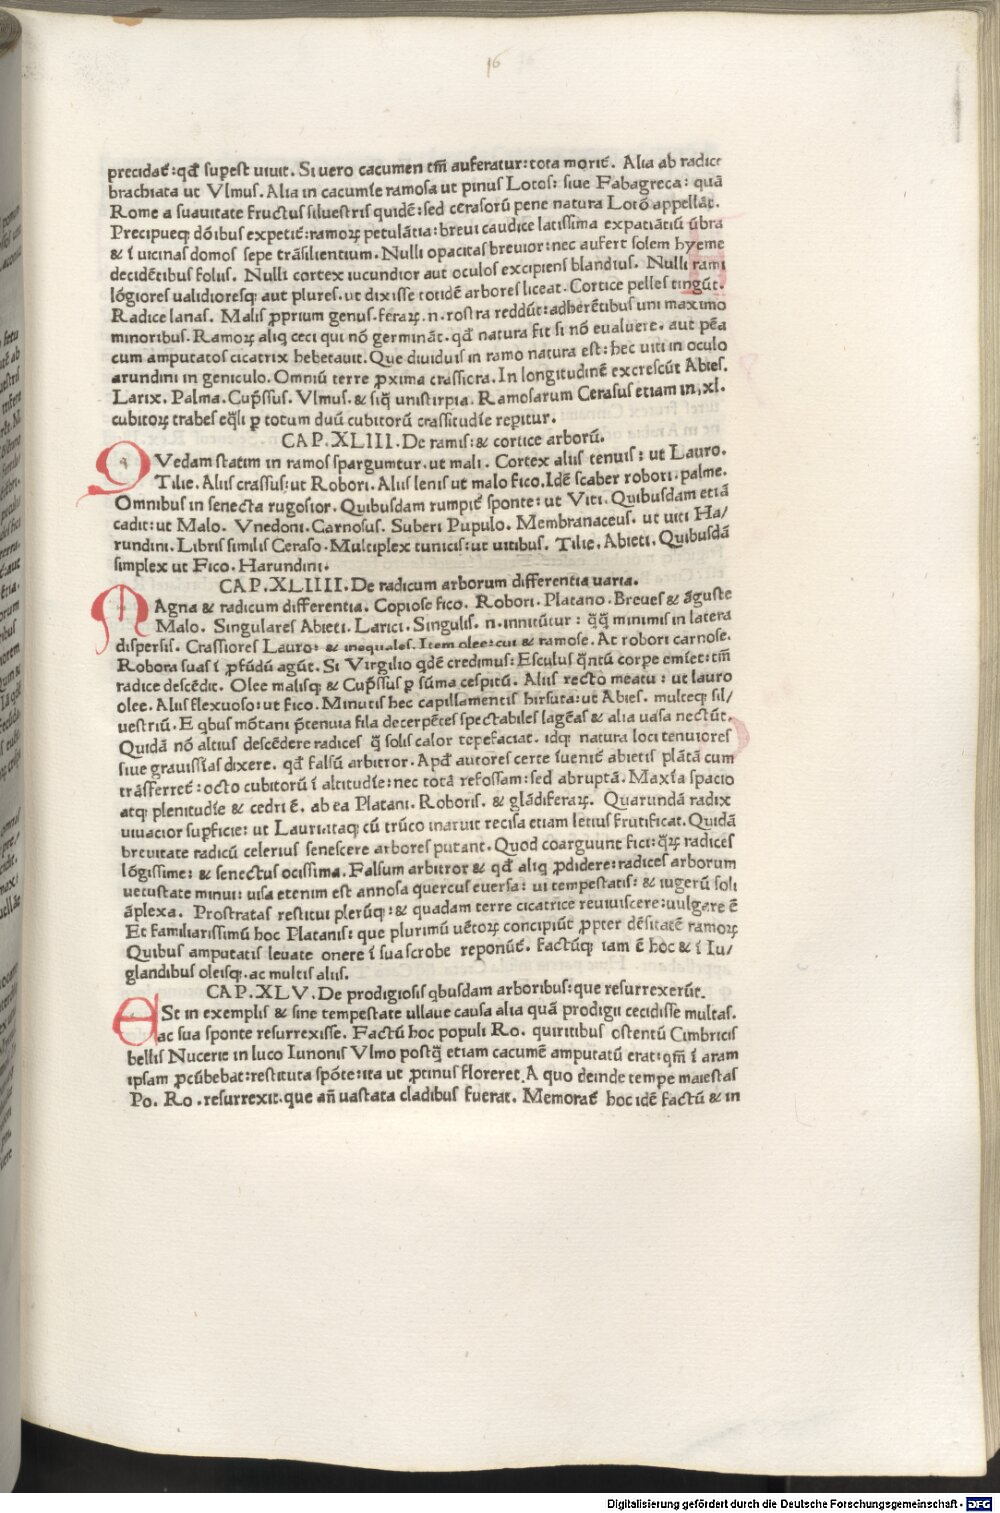 16
precidat᷑: qđ supest uiuit. Si uero cacumen tm̃ auferatur: tota morit᷑. Alia ab radice
brachiata ut Vlmus. Alia in cacumĩe ramosa ut pinus Lotos: siue Fabagreca: quã
Rome a suauitate fructus siluestris quidẽ: sed cerasorũ pene natura Lotõ appellãt.
Precipueq; dõibus expetit᷑: ramoꝝ petulãtia: breui caudice latissima expatiãtiũ ũbra
& ĩ uicinas domos sepe trãsilientium. Nulli opacitas breuior: nec aufert solem hyeme
decidẽtibus foliis. Nulli cortex iucundior aut oculos excipiens blandius. Nulli rami
lõgiores ualidioresq; aut plures. ut dixisse totidẽ arbores liceat. Cortice pelles tingũt.
Radice lanas. Malis ꝓprium genus. feraꝝ. n. rostra reddũt: adherẽtibus uni maximo
minoribus. Ramoꝝ aliq ceci qui nõ germinãt. qđ natura fit si nõ eualuere. aut pẽa
cum amputatos cicatrix hebetauit. Que diuiduis in ramo natura est: hec uiti in oculo
arundini in geniculo. Omniũ terre ꝓxima crassiora. In longitudinẽ excrescũt Abies.
Larix. Palma. Cup̃ssus. Vlmus. & siq̃ unistirpia. Ramosarum Cerasus etiam in, xl.
cubitoꝝ trabes eq̃li ꝑ totum duũ cubitorũ crassitudĩe repitur.
CAP. XLIII. De ramis: & cortice arborũ.
QVedam statim in ramos sparguntur. ut mali. Cortex aliis tenuis: ut Lauro.
Tilie. Aliis crassus: ut Robori. Aliis lenis ut malo fico. Idẽ scaber robori. palme.
Omnibus in senecta rugosior. Quibusdam rumpit᷑ sponte: ut Viti. Quibusdam etiã
cadit: ut Malo. Vnedoni. Carnosus. Suberi Pupulo. Membranaceus. ut uiti Ha/
rundini. Libris similis Ceraso. Multiplex tunicis: ut uitibus. Tilie. Abieti. Quibusdã
simplex ut Fico. Harundini.
CAP. XLIIII. De radicum arborum differentia uaria.
MAgna & radicum differentia. Copiose fico. Robori. Platano. Breues & ãguste
Malo. Singulares Abieti. Larici. Singulis. n. innitũtur: q̃q̃ minimis in latera
dispersis. Crassiores Lauro: & inequales. Item olee: cui & ramose. At robori carnose.
Robora suas ĩ ꝓfũdũ agũt. Si Virgilio qđẽ credimus: Esculus q̃ntũ corpe emĩet: tm̃
radice descẽdit. Olee malisq; & Cup̃ssus ꝑ sũma cespitũ. Aliis recto meatu: ut lauro
olee. Aliis flexuoso: ut fico. Minutis hec capillamentis hirsuta: ut Abies. multeq; sil/
uestriũ. E qbus mõtani p̃tenuia fila decerpẽtes spectabiles lagẽas & alia uasa nectũt.
Quidã nõ altius descẽdere radices q̃ solis calor tepefaciat. idq; natura loci tenuiores
siue grauissĩas dixere. qđ falsũ arbitror. Apđ autores certe ĩuenit᷑ abietis plãtã cum
trãsferret᷑: octo cubitorũ ĩ altitudĩe: nec totã refossam: sed abruptã. Maxĩa spacio
atq; plenitudĩe & cedri ẽ. ab ea Platani. Roboris. & glãdiferaꝝ. Quarundã radix
uiuacior supficie: ut Lauri: itaq; cũ trũco inaruit recisa etiam letius frutificat. Quidã
breuitate radicũ celerius senescere arbores putant. Quod coarguunt fici: q̃ꝝ radices
lõgissime: & senectus ocissima. Falsum arbitror & qđ aliq ꝓdidere: radices arborum
uetustate minui: uisa etenim est annosa quercus euersa: ui tempestatis: & iugerũ soli
ãplexa. Prostratas restitui plerũq;: & quadam terre cicatrice reuiuiscere: uulgare ẽ
Et familiarissimũ hoc Platanis: que plurimũ uẽtoꝝ concipiũt ꝓpter dẽsitatẽ ramoꝝ
Quibus amputatis leuate onere ĩ sua scrobe reponũt᷑. factũq; iam ẽ hoc & ĩ Iu/
glandibus oleisq;. ac multis aliis.
CAP. XLV. De prodigiosis qbusdam arboribus: que resurrexerũt.
ESt in exemplis & sine tempestate ullaue causa alia quã prodigii cecidisse multas.
ac sua sponte resurrexisse. Factũ hoc populi Ro. quiritibus ostentũ Cimbricis
bellis Nucerie in luco Iunonis Vlmo postq̃ etiam cacumẽ amputatũ erat: qm̃ ĩ aram
ipsam ꝓcũbebat: restituta spõte: ita ut ꝓtinus floreret. A quo deinde tempe maiestas
Po. Ro. resurrexit. que añ uastata cladibus fuerat. Memorat᷑ hoc idẽ factũ & in
Digitalisierung gefördert durch die Deutsche Forschungsgemeinschaft - DFG